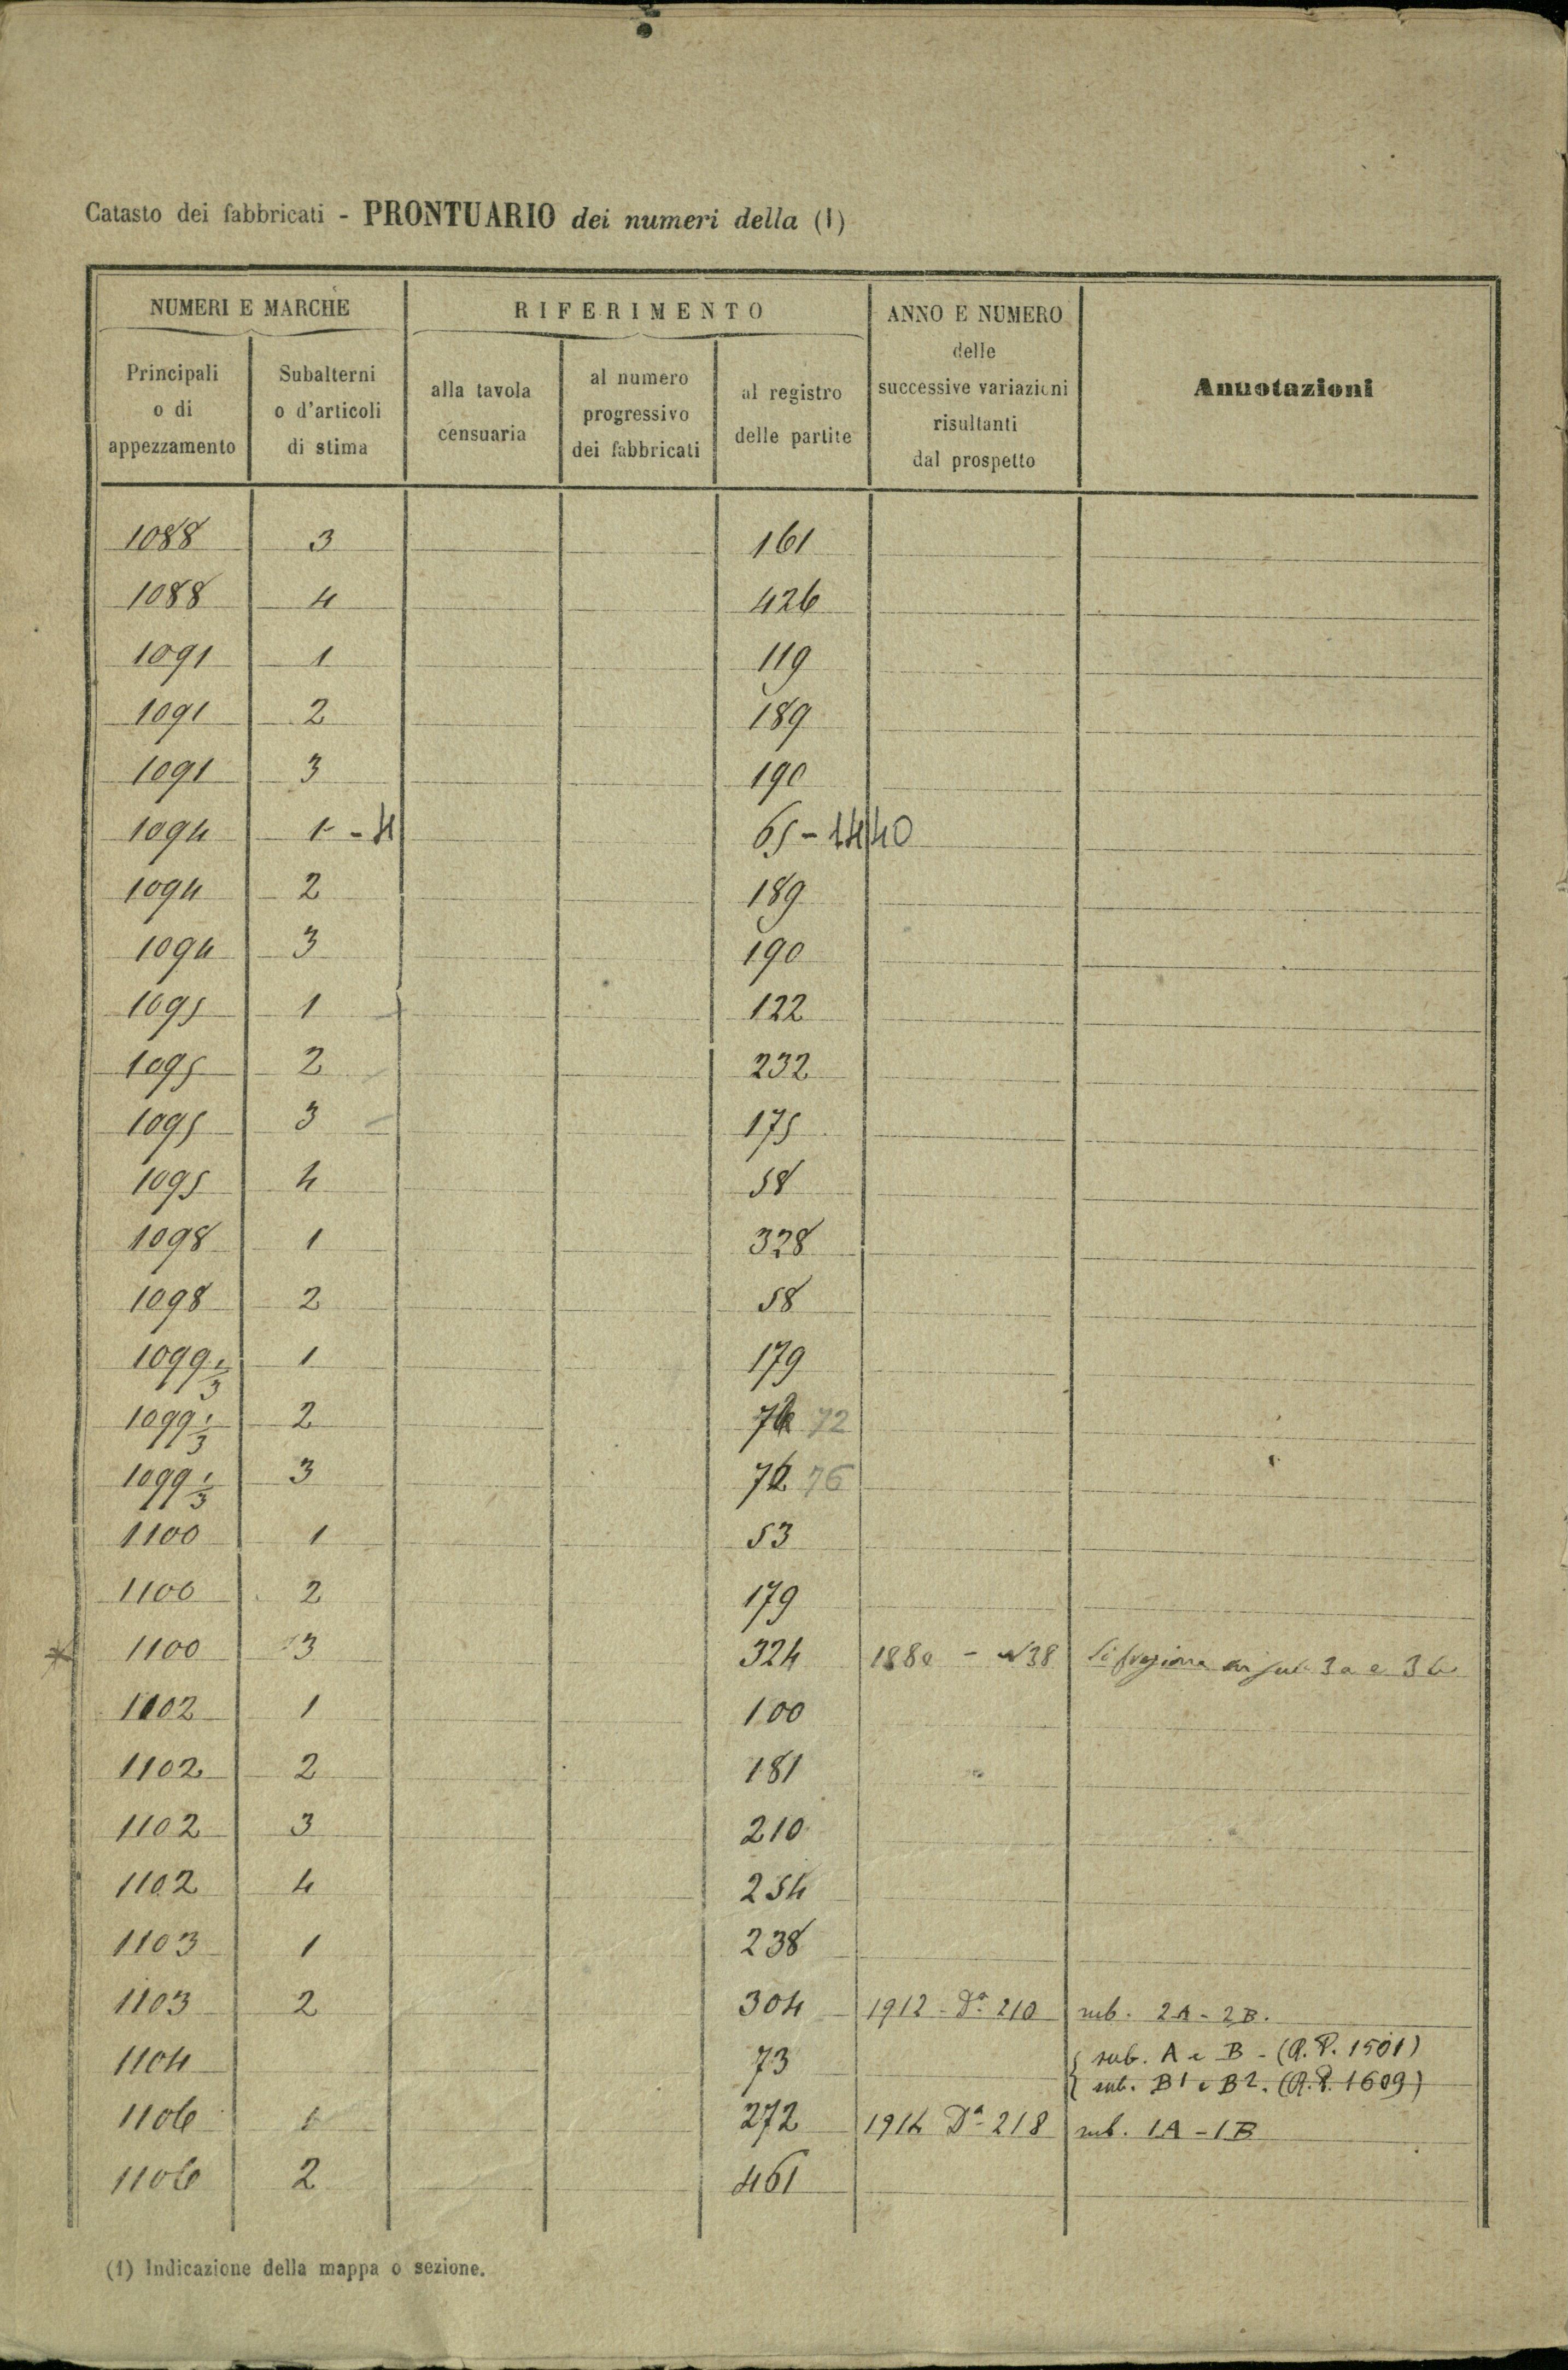 Catasto dei fabbricati - PRONTUARIO dei numeri della (1)
NUMERI E MARCHE
RIFERIMENTO
ANNO E NUMERO delle successive variazioni risultanti dal prospetto
Annotazioni
Principali o di appezzamento
Subalterni o d'articoli di stima
alla tavola censuaria
al numero progressivo dei fabbricati
al registro delle partite
1088 3 161
1088 4 426
1091 1 119
1091 2 189
1091 3 190
1094 1 - 4 65 - 1440
1094 2 189
1094 3 190
1095 1 122
1095 2 232
1095 3 175
1095 4 58
1098 1 328
1098 2 58
1099 1/3 1 179
1099 1/3 2 72
1099 1/3 3 76
1100 1 53
1100 2 179
1100 3 324 - 38 3a e 3b
1102 1 100
1102 2 181
1102 3 210
1102 4 254
1103 1 238
1103 2 304 1912 - Dª 210 sub. 2A - 2B.
1104 73 sub. A e B - (R.P. 1501)
sub. B1 e B2. (R.P. 1609)
1106 1 272 1914 Dª 218 sub. 1A - 1B
1106 2 461
(1) Indicazione della mappa o sezione.